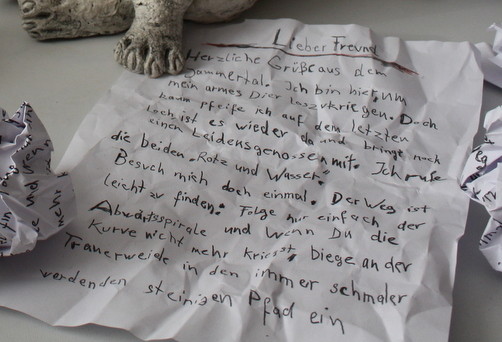 Lieber Freund
Herzliche Grüße aus dem
Jammertal. Ich bin hier, um
mein armes Dier loszukriegen. Doch
kaum pfeife ich auf dem letzten
Loch ist es wieder da und bringt noch
einen Leidensgenossen mit. Ich rufe
die beiden "Rotz und Wasser".
Besuch mich doch einmal. Der Weg ist
leicht zu finden. Folge nur einfach der
Abwärtsspirale und wenn Du die
Kurve nicht mehr kriegst, biege an der
Trauerweide in den immer schmaler
werdenden steinigen Pfad ein